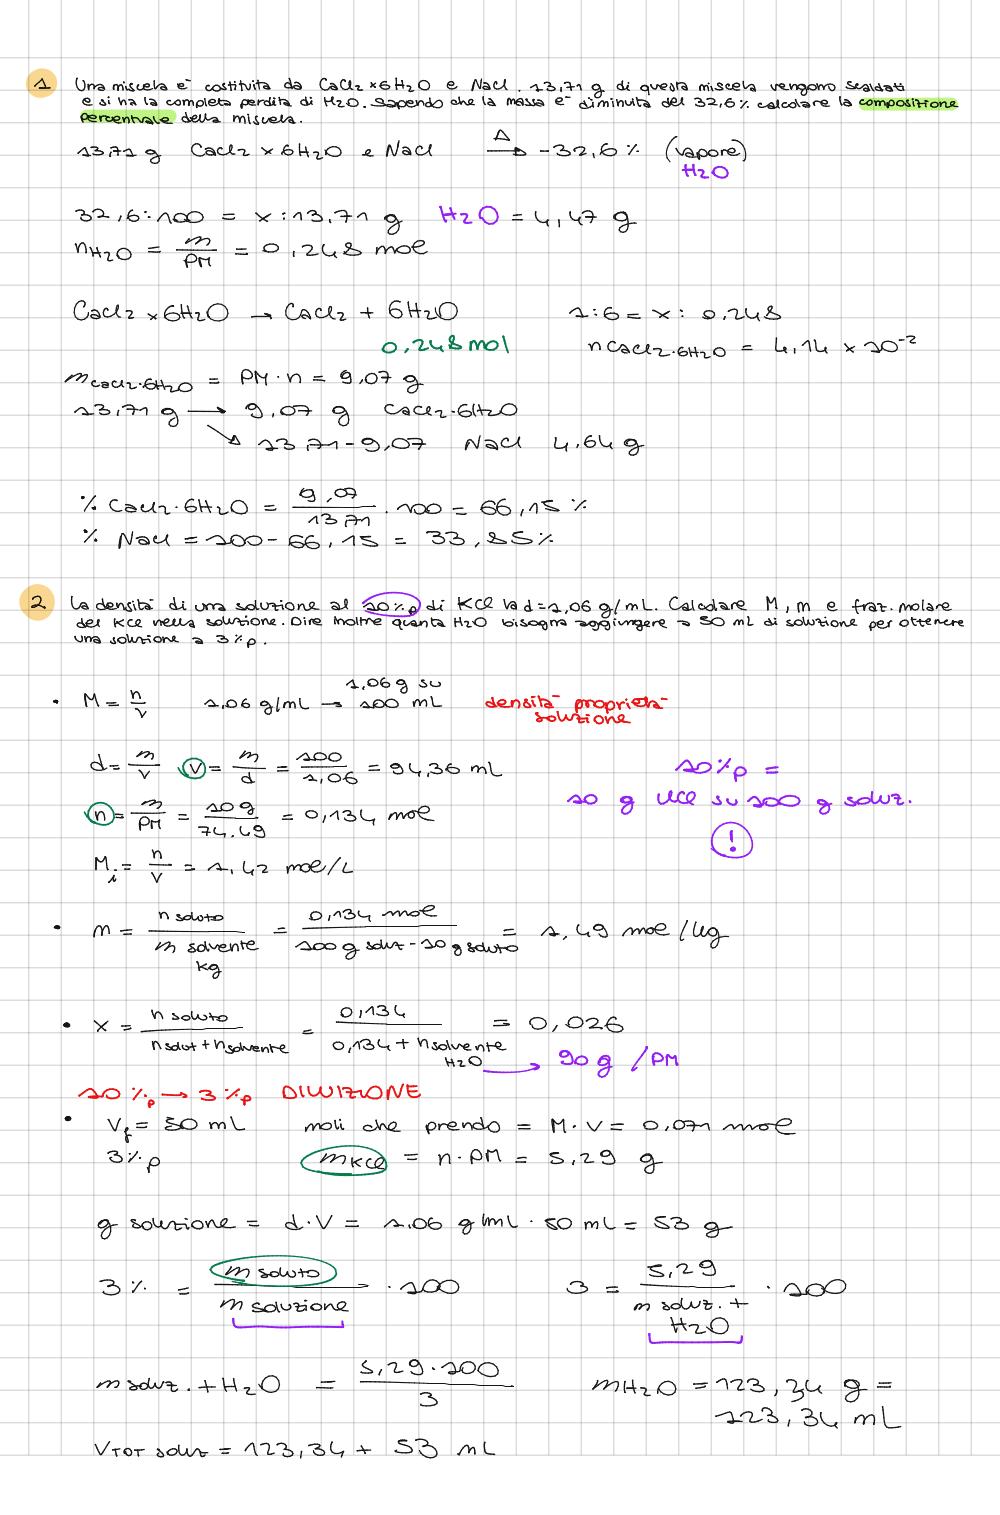 1 Una miscela è costituita da CaCl2 × 6H2O e NaCl. 13,71 g di questa miscela vengono scaldati
e si ha la completa perdita di H2O. Sapendo che la massa è diminuita del 32,6% calcolare la composizione
percentuale della miscela.
13,71 g CaCl2 × 6H2O e NaCl Δ→ -32,6% (vapore)
H2O
32,6:100 = x:13,71 g H2O = 4,47 g
nH2O = m/PM = 0,248 mol
CaCl2 × 6H2O → CaCl2 + 6H2O 1:6 = x: 0,248
0,248 mol nCaCl2·6H2O = 4,14 × 10⁻²
mCaCl2·6H2O = PM·n = 9,07 g
13,71 g → 9,07 g CaCl2·6H2O
↘ 13,71-9,07 NaCl 4,64 g
% CaCl2·6H2O = 9,07/13,71 · 100 = 66,15 %
% NaCl = 100 - 66,15 = 33,85%
2 La densità di una soluzione al 10%p di KCl la d=1,06 g/mL. Calcolare M, m e fraz. molare
del KCl nella soluzione. Dire inoltre quanta H2O bisogna aggiungere a 50 mL di soluzione per ottenere
una soluzione a 3%p.
1,06 g su
• M = n/V 1,06 g/mL → 100 mL densità proprietà
soluzione
d = m/V V = m/d = 100/1,06 = 94,36 mL 10%p =
10 g KCl su 100 g soluz.
n = m/PM = 10g/74.49 = 0,134 mol
!
Mi = n/V = 1,42 mol/L
• m = n soluto/m solvente kg = 0,134 mol/100 g soluz - 10 g soluto = 1,49 mol/kg
• X = n soluto/nsolut + nsolvente = 0,134/0,134 + nsolvente = 0,026
H2O → 90 g /PM
10%p → 3%p DILUIZIONE
• Vf = 50 mL moli che prendo = M·V = 0,071 mol
3%p mKCl = n·PM = 5,29 g
g soluzione = d·V = 1,06 g/mL · 50 mL = 53 g
3% = m soluto/m soluzione · 100 3 = 5,29/m soluz. + H2O · 100
m soluz. + H2O = 5,29·100/3 mH2O = 123,34 g =
123,34 mL
VTOT soluz = 123,34 + 53 mL